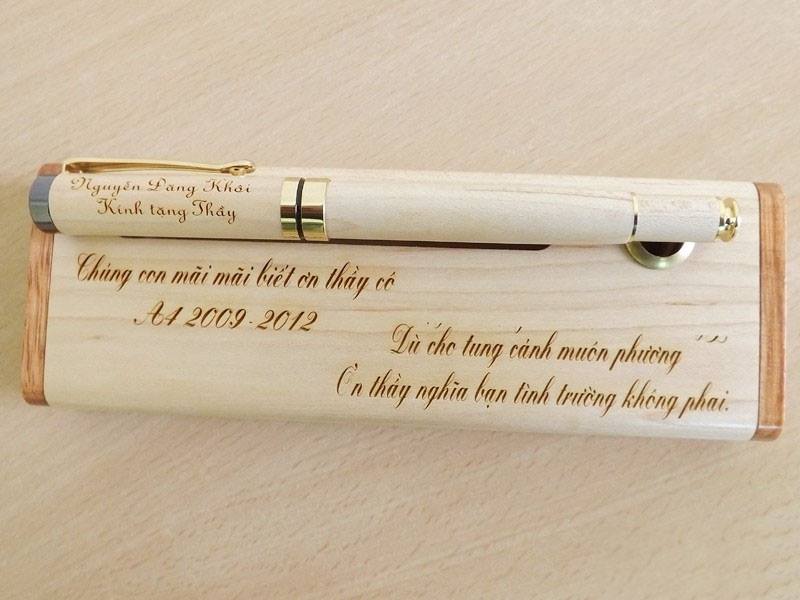 Nguyễn Đăng Khôi
Kính tặng Thầy
Chúng con mãi mãi biết ơn thầy cô
A4 2009-2012
Dù cho tung cánh muôn phương
Ơn thầy nghĩa bạn tình trường không phai.